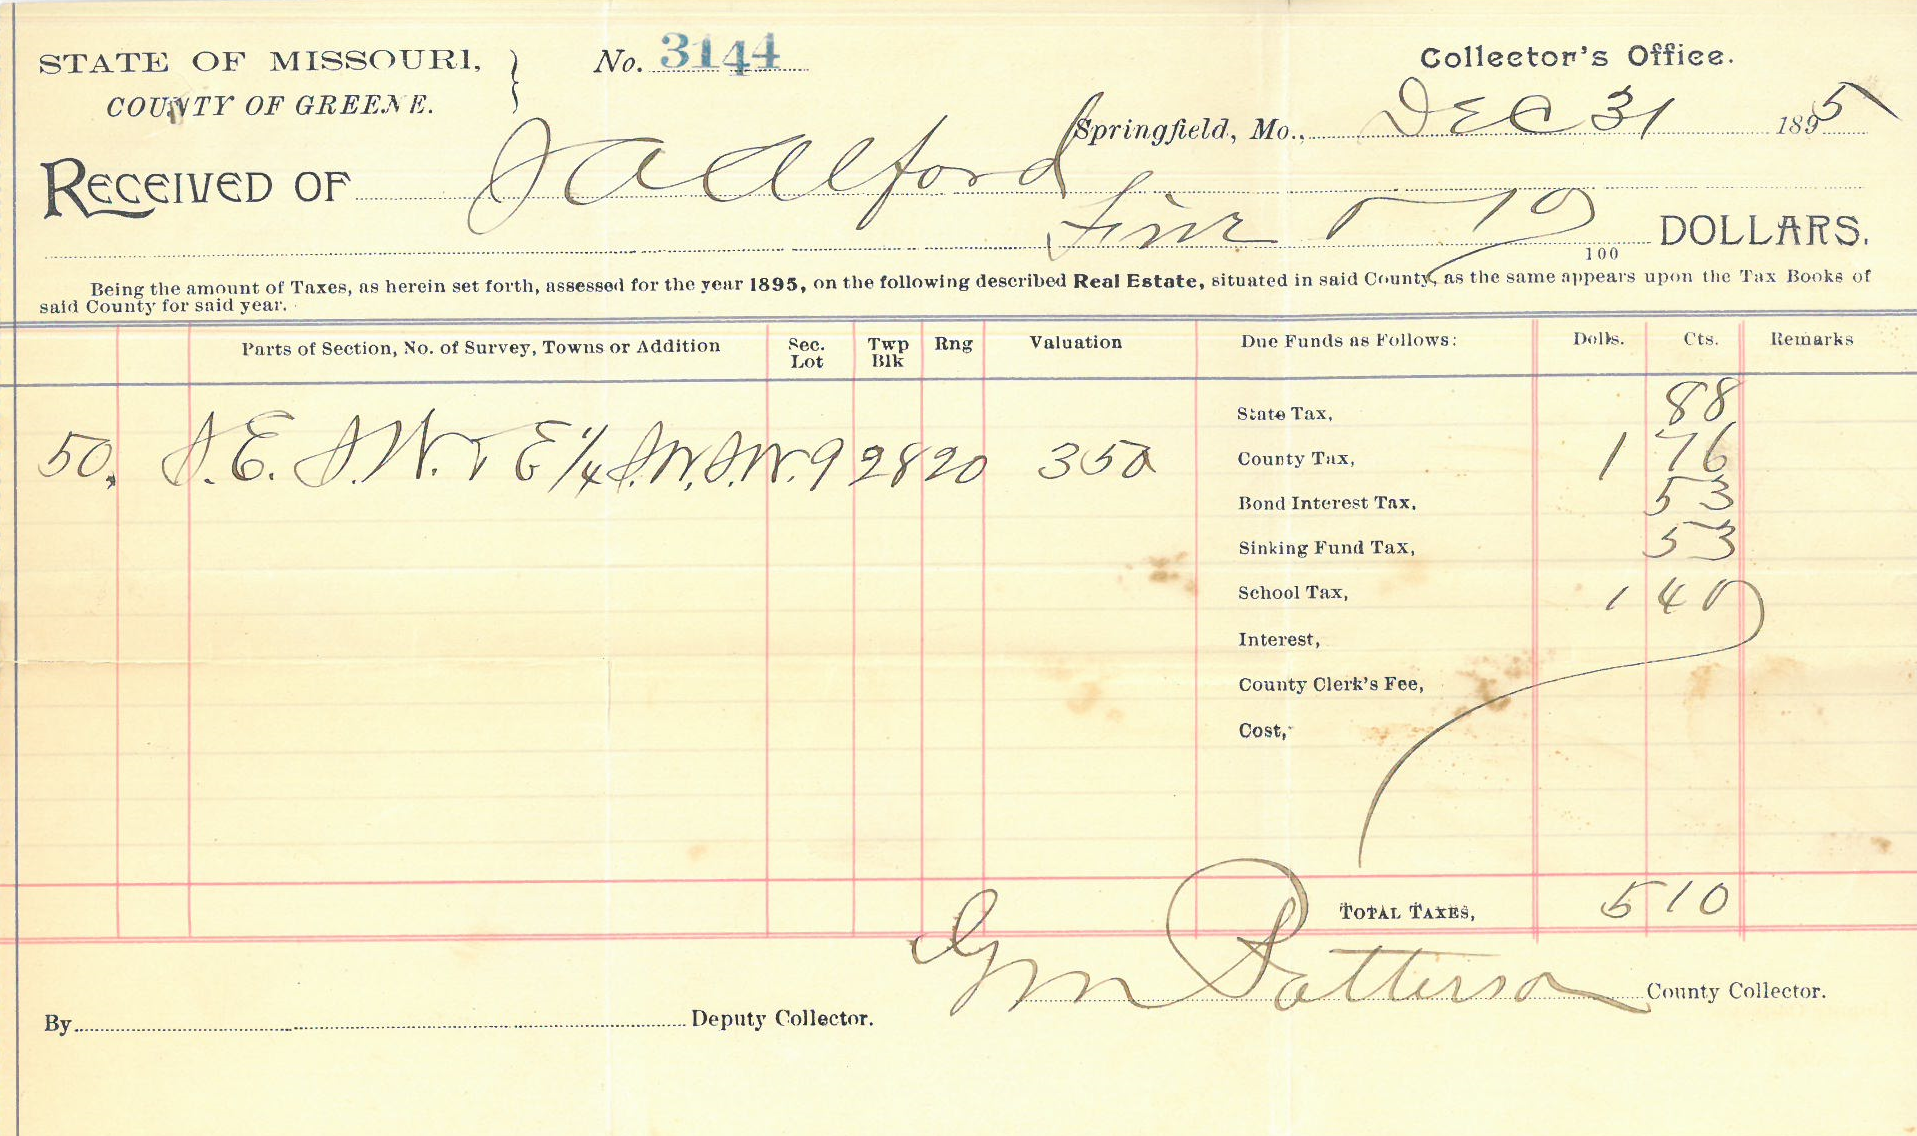 STATE OF MISSOURI, } No. 3144 Collector's Office.
COUNTY OF GREENE. Springfield, Mo., Dec 31 1895
RECEIVED OF J A Alford
Five 10/100 DOLLARS.
Being the amount of Taxes, as herein set forth, assessed for the year 1895, on the following described Real Estate, situated in said County, as the same appears upon the Tax Books of
said County for said year.
Parts of Section, No. of Survey, Towns or Addition Sec. Lot Twp Blk Rng Valuation Due Funds as Follows: Dolls. Cts. Remarks
State Tax, 88
50. S.E. S.W. & E 1/4 S.W. S.W. 9 28 20 350 County Tax, 1 76
Bond Interest Tax, 53
Sinking Fund Tax, 53
School Tax, 1 40
Interest,
County Clerk's Fee,
Cost,
TOTAL TAXES, 5 10
Patterson County Collector.
By Deputy Collector.